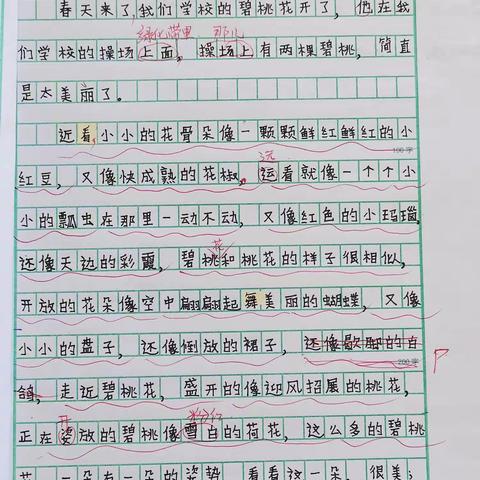 春天来了,我们学校的碧桃花开了，他在我
绿化带里 那儿
们学校的操场上面，操场上有两棵碧桃，简直
是太美丽了。
近看,小小的花骨朵像一颗颗鲜红鲜红的小
100字
红豆，又像快成熟的花椒,运看就像一个个小
远
小的瓢虫在那里一动不动，又像红色的小玛瑙,
还像天边的彩霞，碧桃和桃花的样子很相似，
花
开放的花朵像空中翩翩起舞美丽的蝴蝶，又像
小小的盘子，还像倒放的裙子，还像歇脚的白
200字
鸽，走近碧桃花，盛开的像迎风招展的桃花，
开 粉红
正在姿放的碧桃像雪白的荷花，这么多的碧桃
花，一朵有一朵的姿势，看看这一朵，很美；